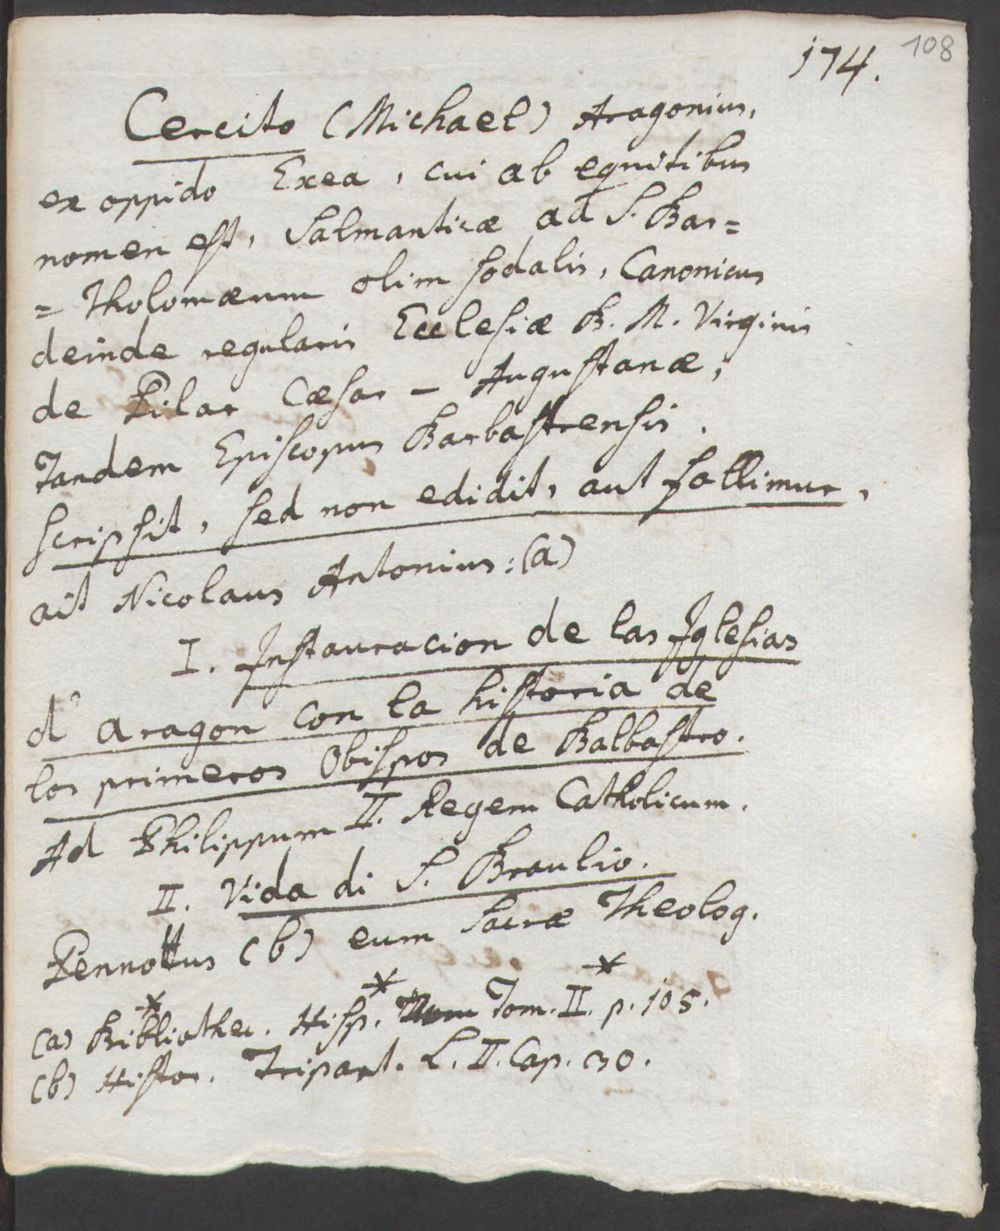 174.
108
Cercito (Michael) Aragonius,
ex oppido Exea, cui ab equitibus
nomen est, Salmanticæ ad S. Bar=
=tholomæum olim sodalis, Canonicus
deinde regularis Ecclesiæ B. M. Virginis
de Pilar Cæsar-Augustanæ,
tandem Episcopus Barbastrensis.
scripsit, sed non edidit, aut fallimur,
ait Nicolaus Antonius: (a)
I. Instauracion de las Iglesias
d' aragon con la historia de
los primeros Obispos de Balbastro.
Ad Philippum II. Regem Catholicum.
II. Vida di S. Braulio.
Pennottus (b) eum Sacræ Theolog.
(a) Bibliothec. Hisp. Tom. II. p. 105.
(b) Histor. Tripart. L. II. Cap. 30.